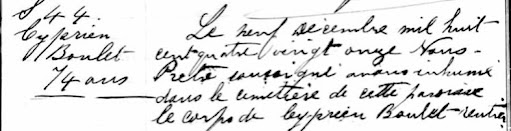 S 44
Cyprien
Boulet
74 ans
Le neuf décembre mil huit
cent quatre vingt onze Nous
Prêtre soussigné avons inhumé
dans le cimetière de cette paroisse
le corps de Cyprien Boulet rentier